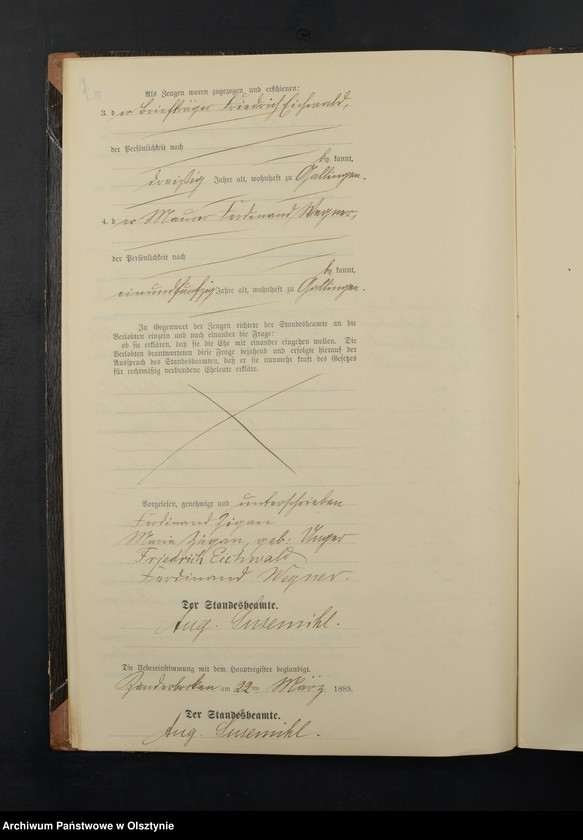 Als Zeugen waren zugezogen und erschienen:
3. der Briefträger Friedrich Eichwald,
der Persönlichkeit nach
be kannt,
dreißig Jahre alt, wohnhaft zu Gallingen.
4. der Maurer Ferdinand Wegner,
der Persönlichkeit nach
be kannt,
einundfünfzig Jahre alt, wohnhaft zu Gallingen.
In Gegenwart der Zeugen richtete der Standesbeamte an die
Verlobten einzeln und nach einander die Frage:
ob sie erklären, daß sie die Ehe mit einander eingehen wollen. Die
Verlobten beantworteten diese Frage bejahend und erfolgte hierauf der
Ausspruch des Standesbeamten, daß er sie nunmehr kraft des Gesetzes
für rechtmäßig verbundene Eheleute erkläre.
Vorgelesen, genehmigt und unterschrieben
Ferdinand Zigan
Marie Zigan, geb. Unger
Friedrich Eichwald
Ferdinand Wegner.
Der Standesbeamte.
Aug. Susemihl.
Die Uebereinstimmung mit dem Hauptregister beglaubigt.
am 22ten März 1889.
Der Standesbeamte.
Aug. Susemihl.
Archiwum Państwowe w Olsztynie